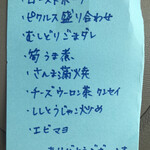 ・ローストポーク
・ピクルス盛り合わせ
・むしどりごまダレ
・筍うま煮
・さんま蒲焼
・チーズウーロン茶
・ししとうじゃこ炒め
・エビマヨ